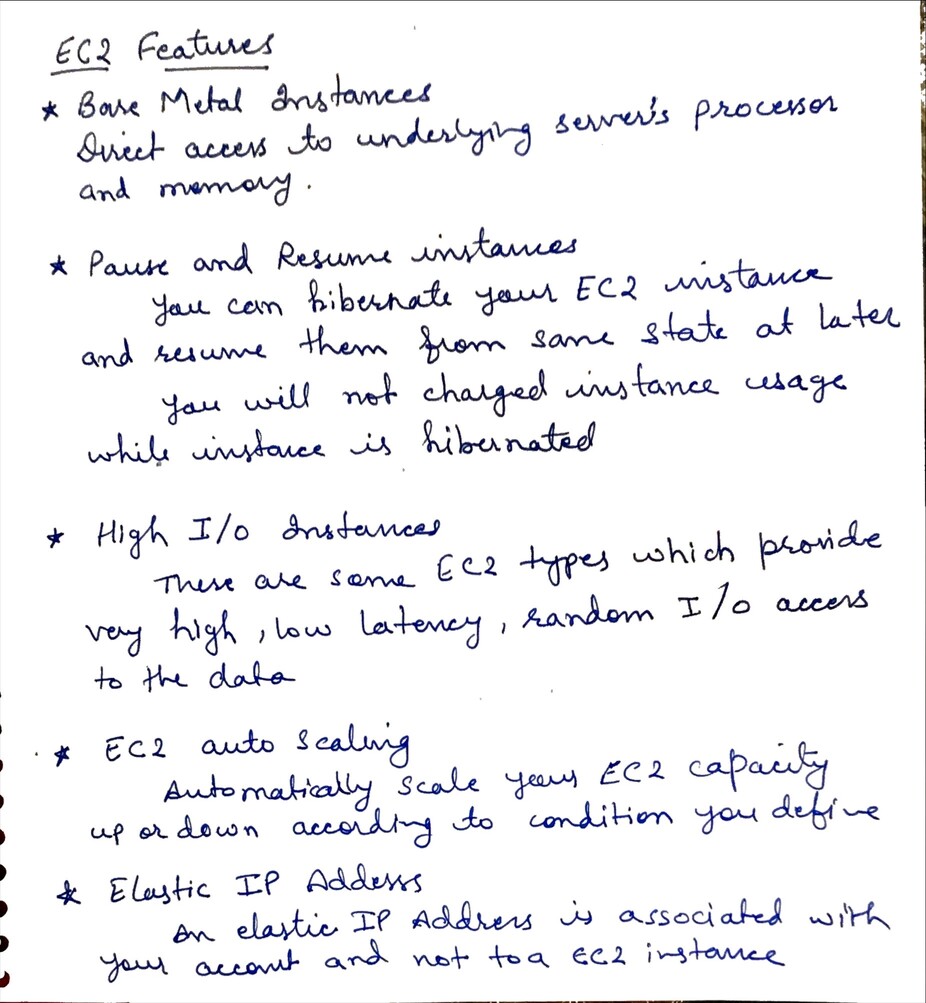 EC2 Features
* Bare Metal Instances
Direct access to underlying server's processor
and memory.
* Pause and Resume instances
You can hibernate your EC2 instance
and resume them from same state at later
You will not charged instance usage
while instance is hibernated
* High I/O Instances
There are some EC2 types which provide
very high, low latency, random I/o access
to the data
* EC2 auto scaling
Automatically scale your EC2 capacity
up or down according to condition you define
* Elastic IP Address
An elastic IP Address is associated with
your account and not to a EC2 instance